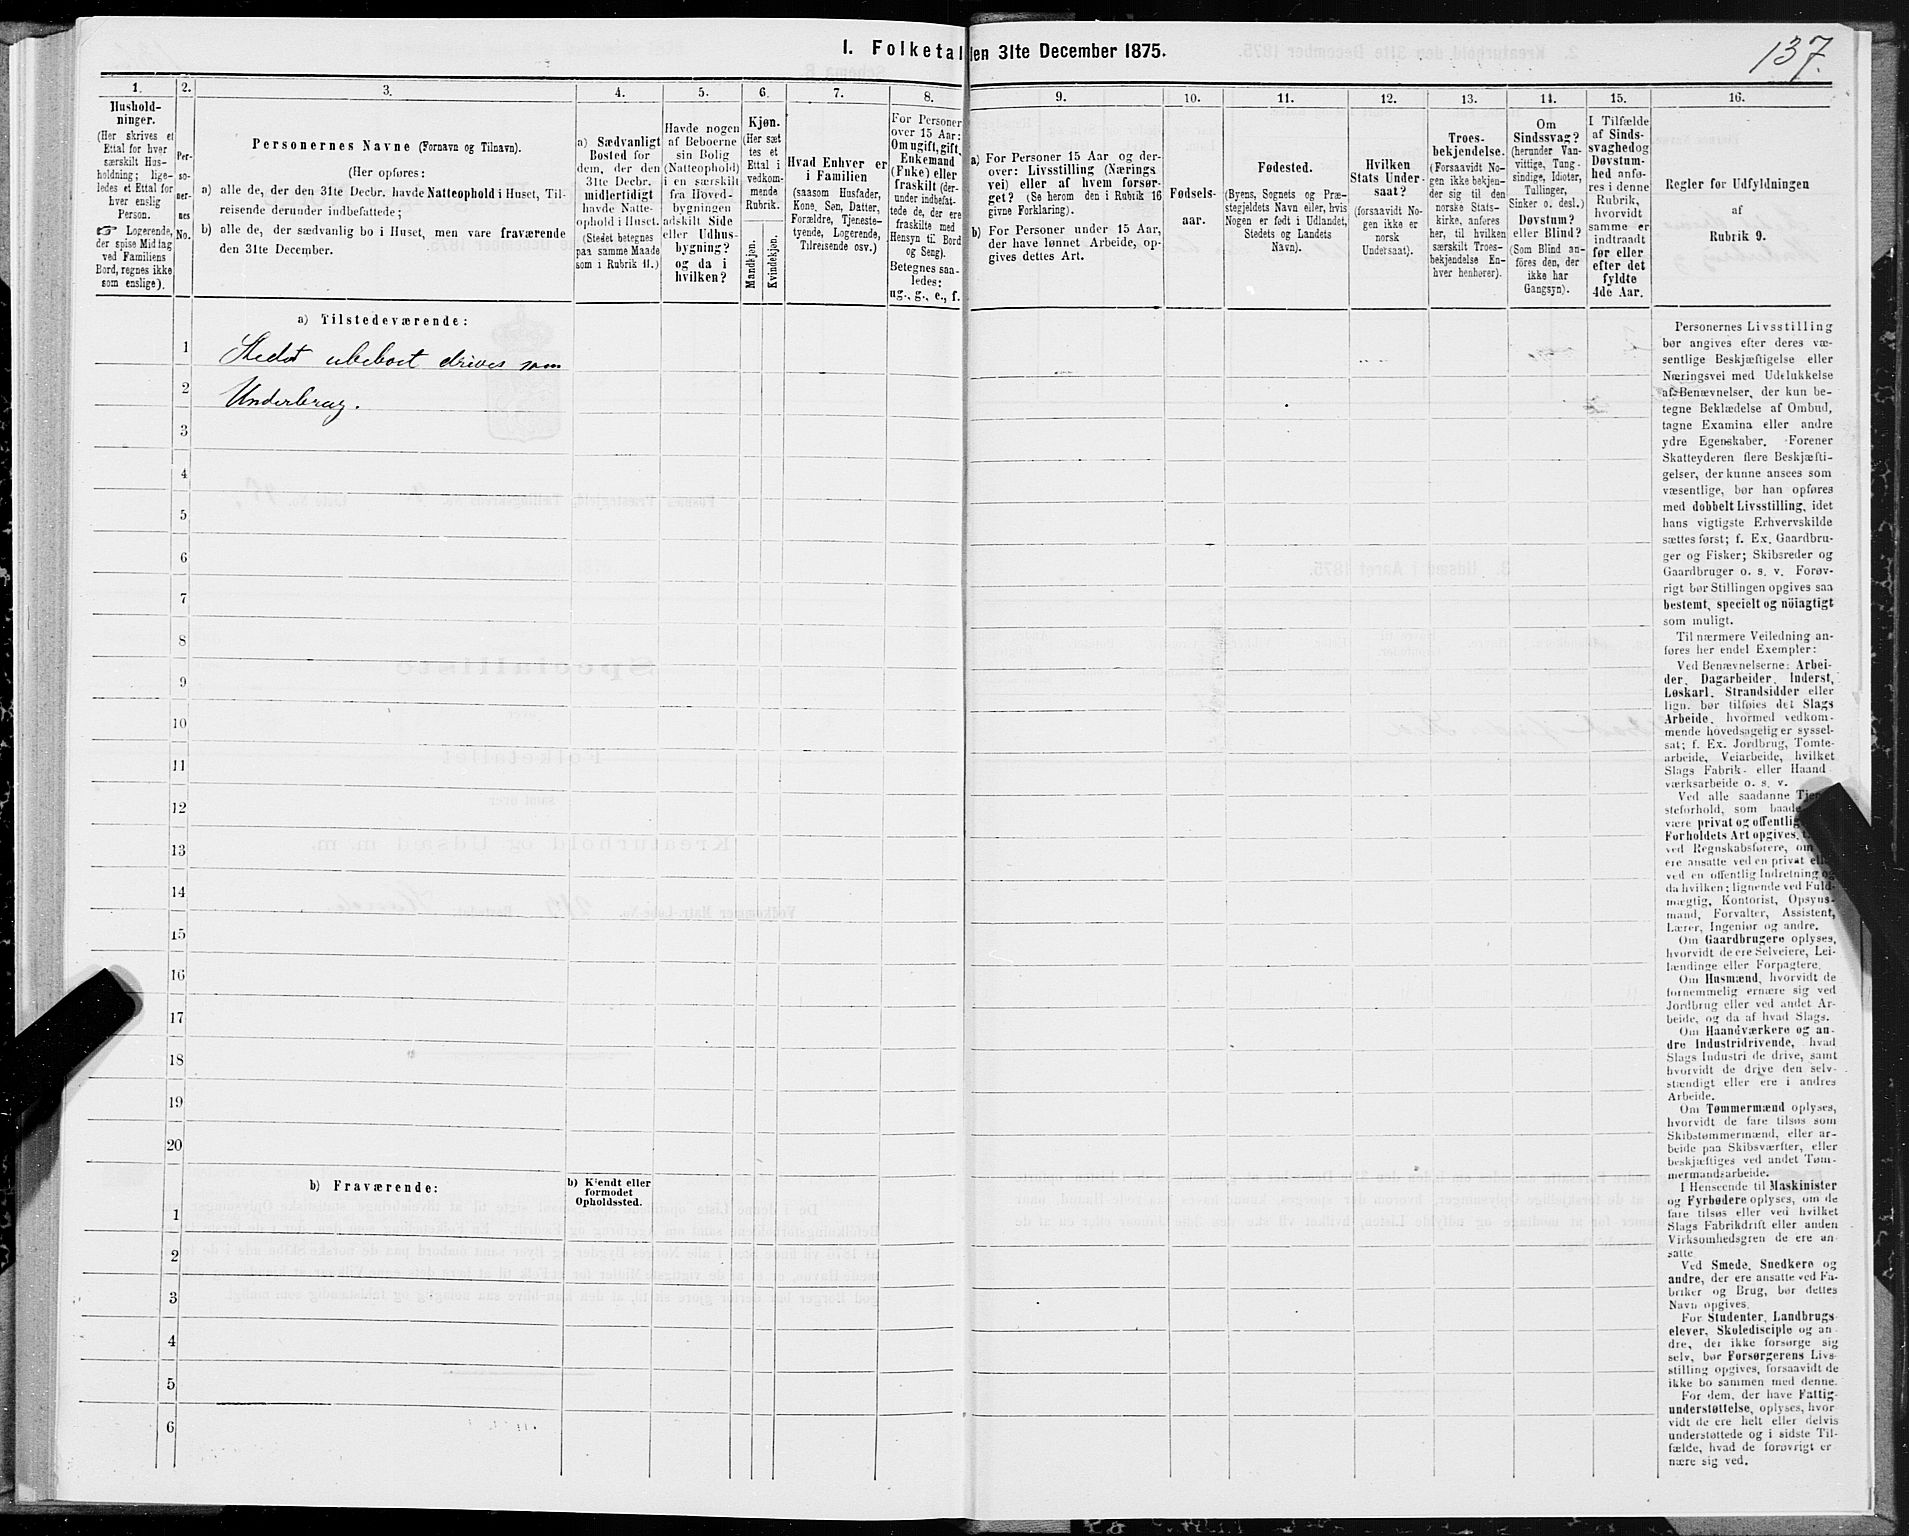 137.
I. Folketal den 31te December 1875.
1.
Hushold-
ninger.
(Her skrives et
Ettal for hver
særskilt Hus-
holdning; lige-
ledes et Ettal for
hver enslig
Person.
☞ Logerende,
der spise Middag
ved Familiens
Bord, regnes ikke
som enslige).
2.
Per-
so-
ner-
nes
No.
3.
Personernes Navne (Fornavn og Tilnavn).
(Her opføres:
a) alle de, der den 31te Decbr. havde Natteophold i Huset, Til-
reisende derunder indbefattede;
b) alle de, der sædvanlig bo i Huset, men vare fraværende
den 31te December.
4.
a) Sædvanligt
Bosted for
dem, der den
31te Decbr.
midlertidigt
havde Natte-
ophold i Huset.
(Stedet betegnes
paa samme Maade
som i Rubrik 11.)
5.
Havde nogen
af Beboerne
sin Bolig
(Natteophold)
i en særskilt
fra Hoved-
bygningen
adskilt Side
eller Udhus-
bygning?
og da i
hvilken?
6.
Kjøn.
(Her sæt
tes et
Ettal i
vedkom-
mende
Rubrik.
Mandkjøn.
Kvindekjøn.
7.
Hvad Enhver er
i Familien
(saasom Husfader,
Kone, Søn, Datter,
Forældre, Tjeneste-
tyende, Logerende,
Tilreisende osv.)
8.
For Personer
over 15 Aar:
Om ugift, gift,
Enkemand
(Enke) eller
fraskilt (der-
under indbefat-
tede de, der ere
fraskilte med
Hensyn til Bord
og Seng).
Betegnes saa-
ledes:
ug., g., e., f.
9.
a) For Personer 15 Aar og der-
over: Livsstilling (Nærings
vei) eller af hvem forsør-
get? (Se herom den i Rubrik 16
givne Forklaring).
b) For Personer under 15 Aar,
der have lønnet Arbeide, op-
gives dettes Art.
10.
Fødsels-
aar.
11.
Fødested.
(Byens, Sognets og Præ-
stegjeldets Navn eller, hvis
Nogen er født i Udlandet,
Stedets og Landets
Navn).
12.
Hvilken
Stats Under-
saat?
(forsaavidt No-
gen ikke er
norsk
Undersaat).
13.
Troes-
bekjendelse.
(Forsaavidt No-
gen ikke bekjen-
der sig til den
norske Stats-
kirke, anføres
her, til hvilken
særskilt Troes-
bekjendelse En-
hver henhører).
14.
Om
Sindssvag?
(herunder Van-
vittige, Tung-
sindige, Idioter,
Tullinger,
Sinker o. desl.)
Døvstum?
eller Blind?
(Som Blind an-
føres den, der
ikke har
Gangsyn).
15.
I Tilfælde
af Sinds-
svaghed og
Døvstum-
hed anfø-
res i denne
Rubrik,
hvorvidt
samme er
indtraadt
før eller
efter det
fyldte
4de Aar.
16.
Regler for Udfyldningen
af
Rubrik 9.
a) Tilstedeværende:
1
Stedet ubeboet drives som
2
Underbrug.
3
4
5
6
7
8
9
10
11
12
13
14
15
16
17
18
19
20
b) Fraværende:
b) Kjendt eller
formodet
Opholdssted.
1
2
3
4
5
6
Personernes Livsstilling
bør angives efter deres væ-
sentlige Beskjæftigelse eller
Næringsvei med Udelukkelse
af Benævnelser, der kun be-
tegne Beklædelse af Ombud,
tagne Examina eller andre
ydre Egenskaber. Forener
Skatteyderen flere Beskjæfti-
gelser, der kunne ansees som
væsentlige, bør han opføres
med dobbelt Livsstilling, idet
hans vigtigste Erhvervskilde
sættes først; f. Ex. Gaardbru-
ger og Fisker; Skibsreder og
Gaardbruger o. s. v. Forøv-
rigt bør Stillingen opgives saa
bestemt, specielt og nöiagtigt
som muligt.
Til nærmere Veiledning an-
føres her endel Exempler:
Ved Benævnelserne: Arbei-
der, Dagarbeider, Inderst,
Løskarl, Strandsidder eller
lign. bør tilføies det Slags
Arbeide, hvormed vedkom-
mende hovedsagelig er syssel-
sat; f. Ex. Jordbrug, Tomte-
arbeide, Veiarbeide, hvilket
Slags Fabrik- eller Haand-
værksarbeide o. s. v.
Ved alle saadanne Tje
steforhold, som baade
være privat og offentlig
Forholdets Art opgives,
ved Regnskabsførere, om
ere ansatte ved en privat
ved en offentlig Indretning og
da hvilken; lignende ved Fuld-
mægtig, Kontorist, Opsyns-
mand, Forvalter, Assistent,
Lærer, Ingeniør og andre.
Om Gaardbrugere oplyses,
hvorvidt de ere Selveiere, Lei-
lændinge eller Forpagtere.
Om Husmænd, hvorvidt de
fornemmelig ernære sig ved
Jordbrug eller ved andet Ar-
beide, og da af hvad Slags.
Om Haandværkere og an-
dre Industridrivende, hvad
Slags Industri de drive, samt
hvorvidt de drive den selv-
stændigt eller ere i andres
Arbeide.
Om Tømmermænd oplyses,
hvorvidt de fare tilsøs som
Skibstømmermænd, eller ar-
beide paa Skibsværfter, eller
beskjæftiges ved andet Tøm-
mermandsarbeide.
I Henseende til Maskinister
og Fyrbødere oplyses, om de
fare tilsøs eller ved hvilket
Slags Fabrikdrift eller anden
Virksomhedsgren de ere an-
satte.
Ved Smede, Snedkere og
andre, der ere ansatte ved Fa-
briker og Brug, bør dettes
Navn opgives.
For Studenter, Landbrugs
elever, Skoledisciple og an-
dre, der ikke forsørge sig
selv, bør Forsørgerens Livs-
stilling opgives, forsaavidt de
ikke bo sammen med denne.
For dem, der have Fattig-
understøttelse, oplyses, hvor-
vidt de ere helt eller delvis
understøttede og i sidste Til-
fælde, hvad de forøvrigt er-
nære sig ved.